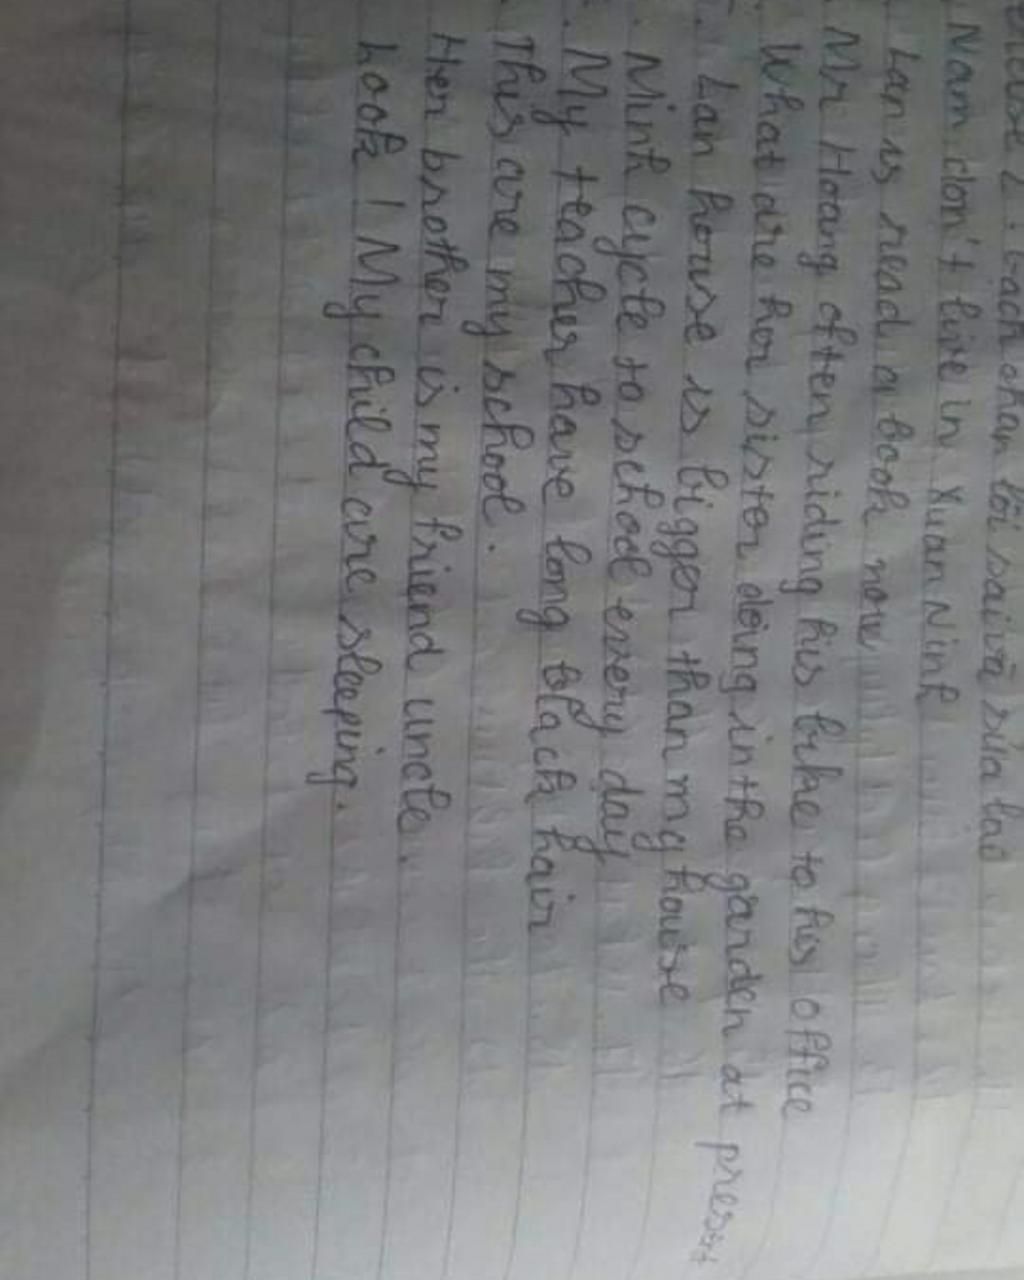 2: Gạch chân lỗi sai và sửa lại
Nam don't live in Xuan Ninh
Lan is read a book now
Mr Hoang often riding his bike to his office
What are her sister doing in the garden at present
Lan house is bigger than my house
Minh cycle to school every day
My teacher have long black hair
This are my school.
Her brother is my friend uncle.
Look! My child are sleeping.